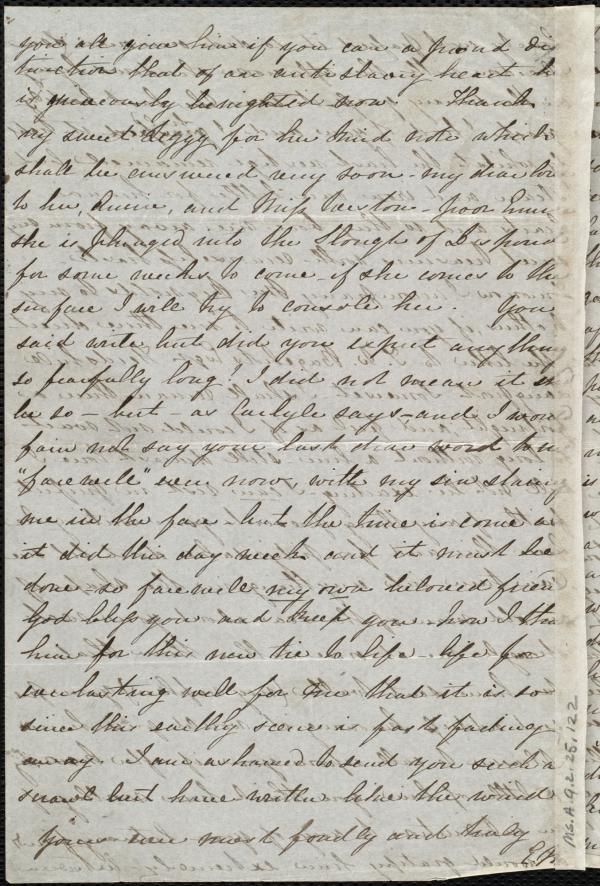 you all give him if you can a proud dis
tinction that of an anti slavery heart h
is grievously benighted now. Thank
my sweet Peggy for her kind note which
shall be answered very soon - my dear lov
to her, Annie, and Miss Weston - poor Emm
she is plunged into the Slough of Dispond
for some weeks to come - if she comes to the
surface I will try to console her. You
said write but did you expect anything
so fearfully long? I did not mean it to
be so - but - as Carlyle says - and I wou
fain not say your last dear word to m
"farewell" even now, with my sin staring
me in the face - but the time is come as
it did this day week and it must be
done - so farewell my own beloved frien
God bless you and keep you - how I tha
him for this new tie to life - life for
everlasting well for me that it is so
since this earthly scene is fast fading
away I am ashamed to send you such a
but have written like the wind
Yours ever most fondly and truly
Ms.A.9.2.25,122